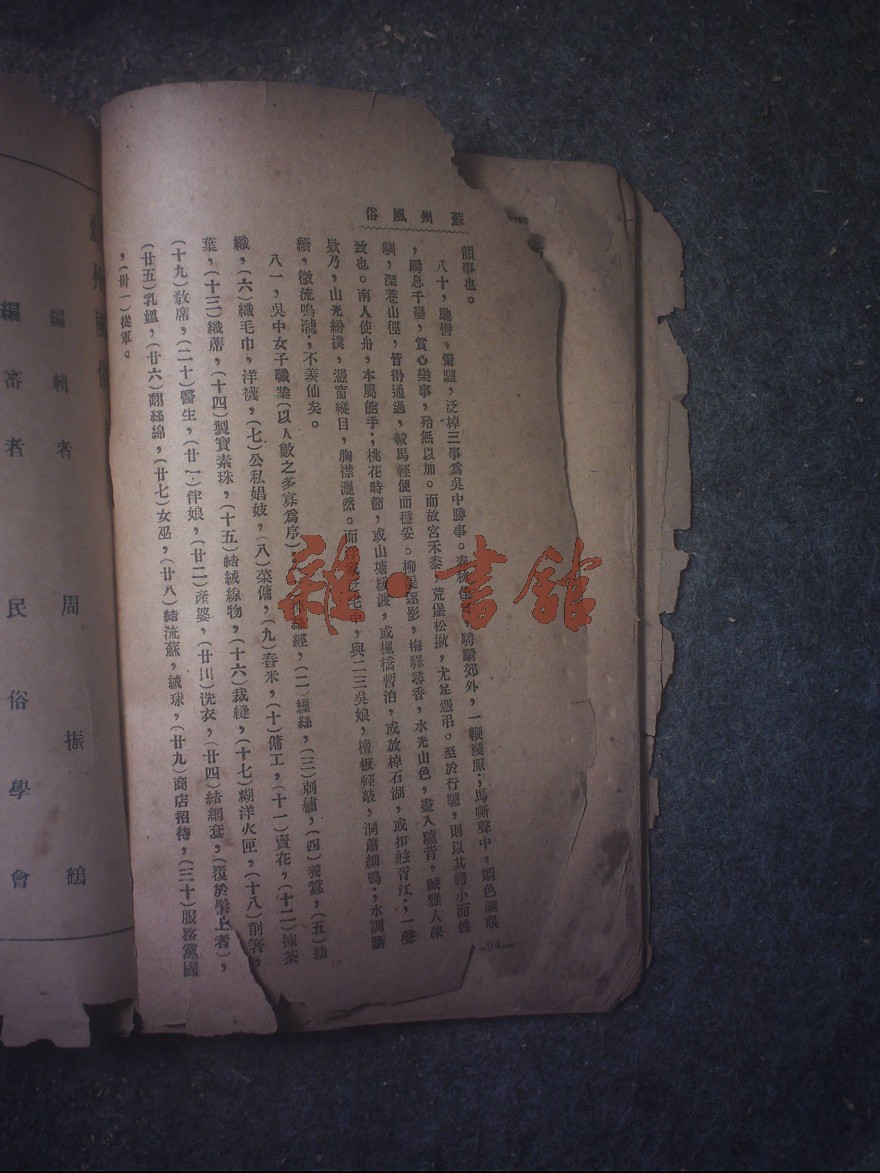 蘇州風俗
韻事也。
八十，馳轡，策蹇，泛棹三事為吳中勝事。春秋佳日，騁騎郊外，一鞭殘照；馬嘶聲中，烟色滿眼
，歸息于鞍，賞心樂事，殆無以加。而故宮禾黍，荒堡松楸，尤足憑弔。至於行驢，則以其體小而性
馴，深巷山徑，皆得通過，較馬輕便而穩妥。柳堤逐影，梅驛尋香，水光山色，盡入驢背，誠雅人深
致也。南人使舟，本屬能手；桃花時節，或山塘緩渡，或楓橋暫泊，或放棹石湖，或扣舷胥江；一聲
欸乃，山光紛撲，憑窗縱目，胸襟灑然。而 與二三吳娘，檀板輕敲，洞簫細鳴；水調斷
續，微流鳴瀧；不羨仙矣。
八一，吳中女子職業（以人數之多寡為序） 經，（二）繅絲，（三）刺繡，（四）養蠶，（五）紡
織，（六）織毛巾，洋襪，（七）公私娼妓，（八）菜傭，（九）舂米，（十）傭工，（十一）賣花，（十二）揀茶
葉，（十三）織蓆，（十四）製寶素珠，（十五）結絨線物，（十六）裁縫，（十七）糊洋火匣，（十八）削箸，
（十九）教席，（二十）醫生，（廿一）伴娘，（廿二）產婆，（廿川）洗衣，（廿四）結網套，（覆於髻上者），
（廿五）乳媼，（廿六）翻絲綿，（廿七）女巫，（廿八）結流蘇，絨球，（廿九）商店招待，（三十）服務黨國
，（卅一）從軍。
—94—
蘇州風俗
編輯者 周振鶴
編審者 民俗學會
雜·書館